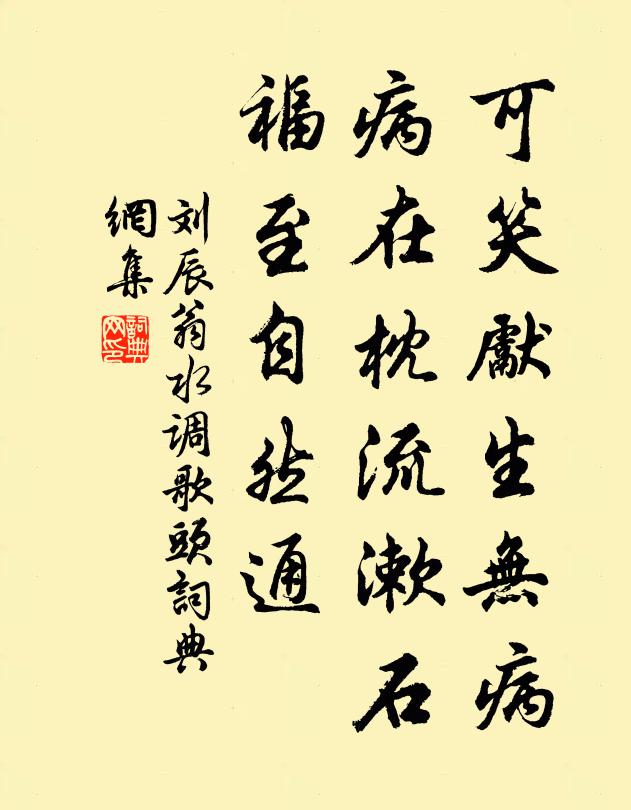 可笑獻生無病
病在枕流漱石
福至自然通
刘辰翁水调歌頭詞典
網集
詞典
网印